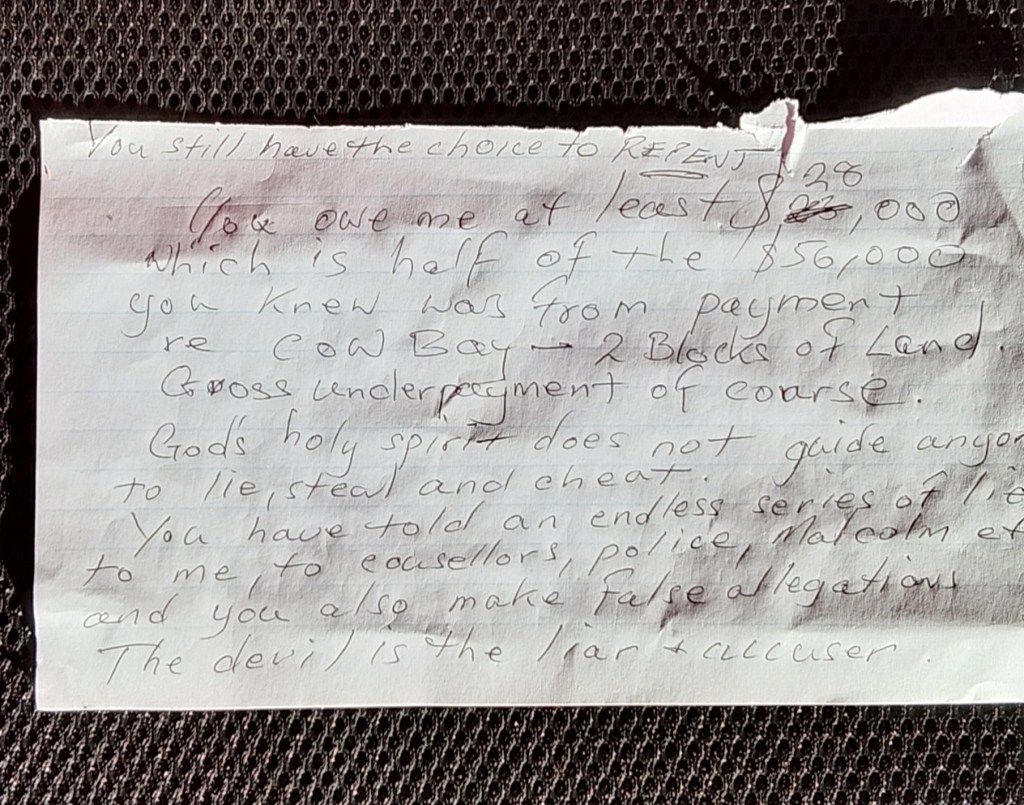 You still have the choice to REPENT
28
You owe me at least $,000
which is half of the $56,000
you knew was from payment
re Cow Bay - 2 Blocks of Land.
Gross underpayment of coarse.
God's holy spirit does not guide anyon
to lie, steal and cheat.
You have told an endless series of lie
to me, to cousellors, police, Malcolm et
and you also make false allegations
The devil is the liar + accuser.